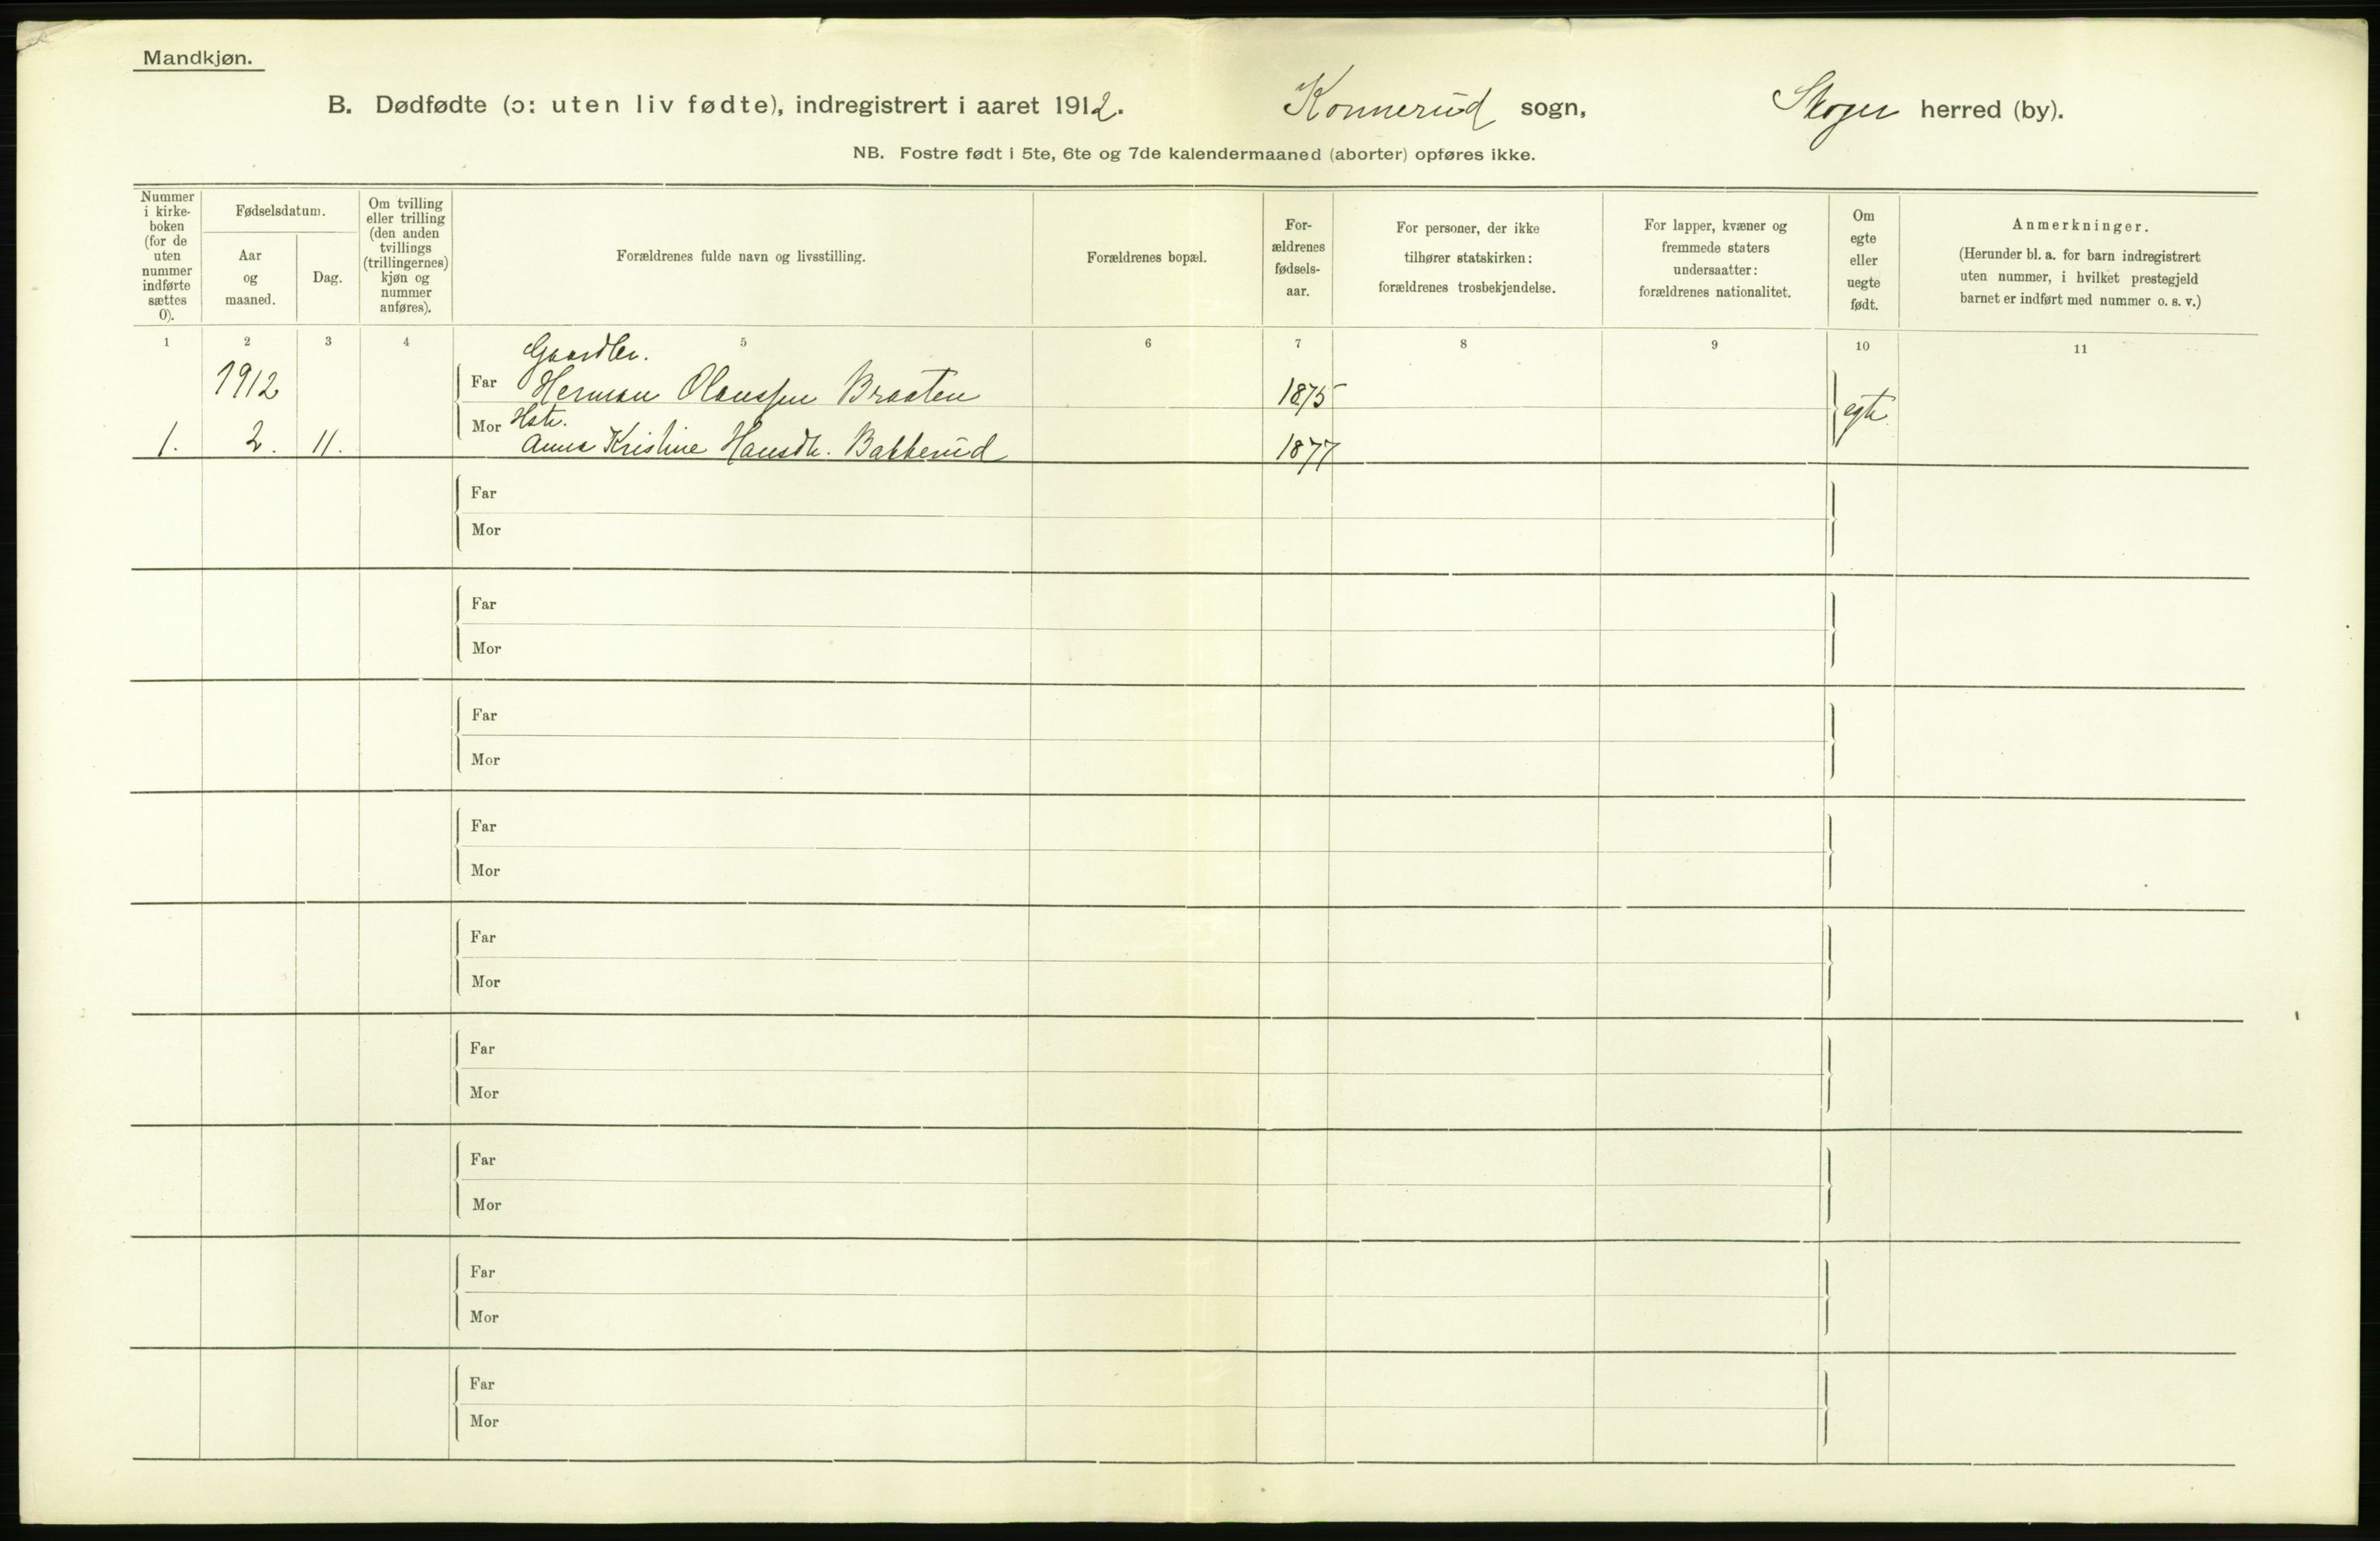 Mandkjøn.
B. Dødfødte (ɔ: uten liv fødte), indregistrert i aaret 1912. Konnerud sogn, Skoger herred (by).
NB. Fostre født i 5te, 6te og 7de kalendermaaned (aborter) opføres ikke.
Nummer
i kirke-
boken
(for de
uten
nummer
indførte
sættes
0).
Fødselsdatum.
Aar
og
maaned.
Dag.
Om tvilling
eller trilling
(den anden
tvillings
(trillingernes)
kjøn og
nummer
anføres).
Forældrenes fulde navn og livsstilling.
Forældrenes bopæl.
For-
ældrenes
fødsels-
aar.
For personer, der ikke
tilhører statskirken:
forældrenes trosbekjendelse.
For lapper, kvæner og
fremmede staters
undersaatter:
forældrenes nationalitet.
Om
egte
eller
uegte
født.
Anmerkninger.
(Herunder bl. a. for barn indregistrert
uten nummer, i hvilket prestegjeld
barnet er indført med nummer o. s. v.)
1 2 3 4 5 6 7 8 9 10 11
Gaardbr.
1912 Far Herman Olaussen Braaten 1875
egte
Mor Hstr.
1. 2. 11. Anna Kristine Hansdtr. Bakkerud 1877
Far
Mor
Far
Mor
Far
Mor
Far
Mor
Far
Mor
Far
Mor
Far
Mor
Far
Mor
Far
Mor